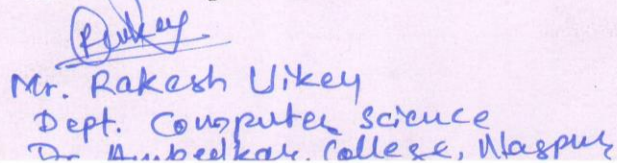 Mr. Rakesh Uikey
Dept. Computer Science
Dr. Ambedkar College, Nagpur